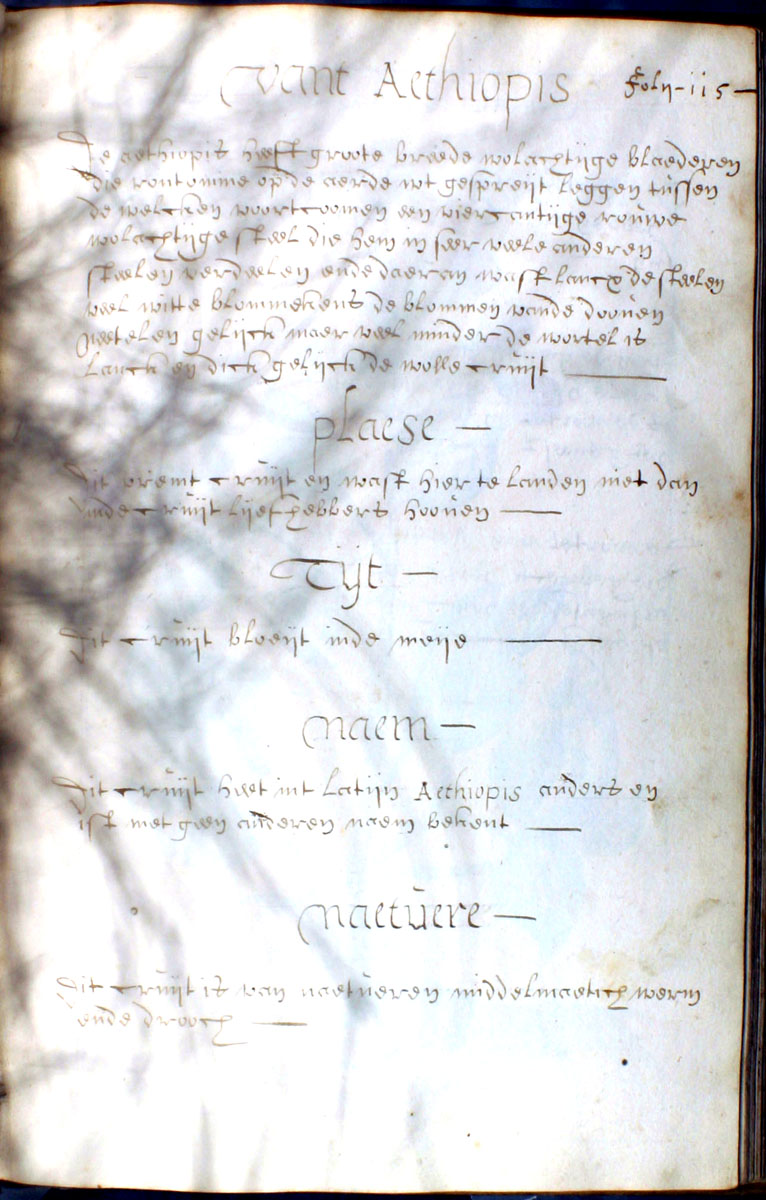 vant Aethiopis Folÿ-115-
De aethiopis heeft groote breede wolachtijge blaederen
die rontomme op de aerde wt gespreijt leggen tussen
de welcken voortcoomen een viercantijge rouwe
wolachtijge steel die hem in seer veele anderen
steelen verdeelen ende daeran wast lancx de steelen
veel witte blommekens de blommen vande dooven
neetelen gelijck maer veel minder de wortel is
lanck en dick gelijck de wolle cruijt —
plaese —
Dit vremt cruijt en wast hier te landen niet dan
inde cruijt liefhebbers hooven —
Tijt —
Dit cruijt bloeijt inde meije —
naem —
Dit cruijt heet int latijn Aethiopis anders en
ist met geen anderen naem bekent —
naetuere —
Dit cruijt is van naetueren middelmaetich werm
ende drooch —